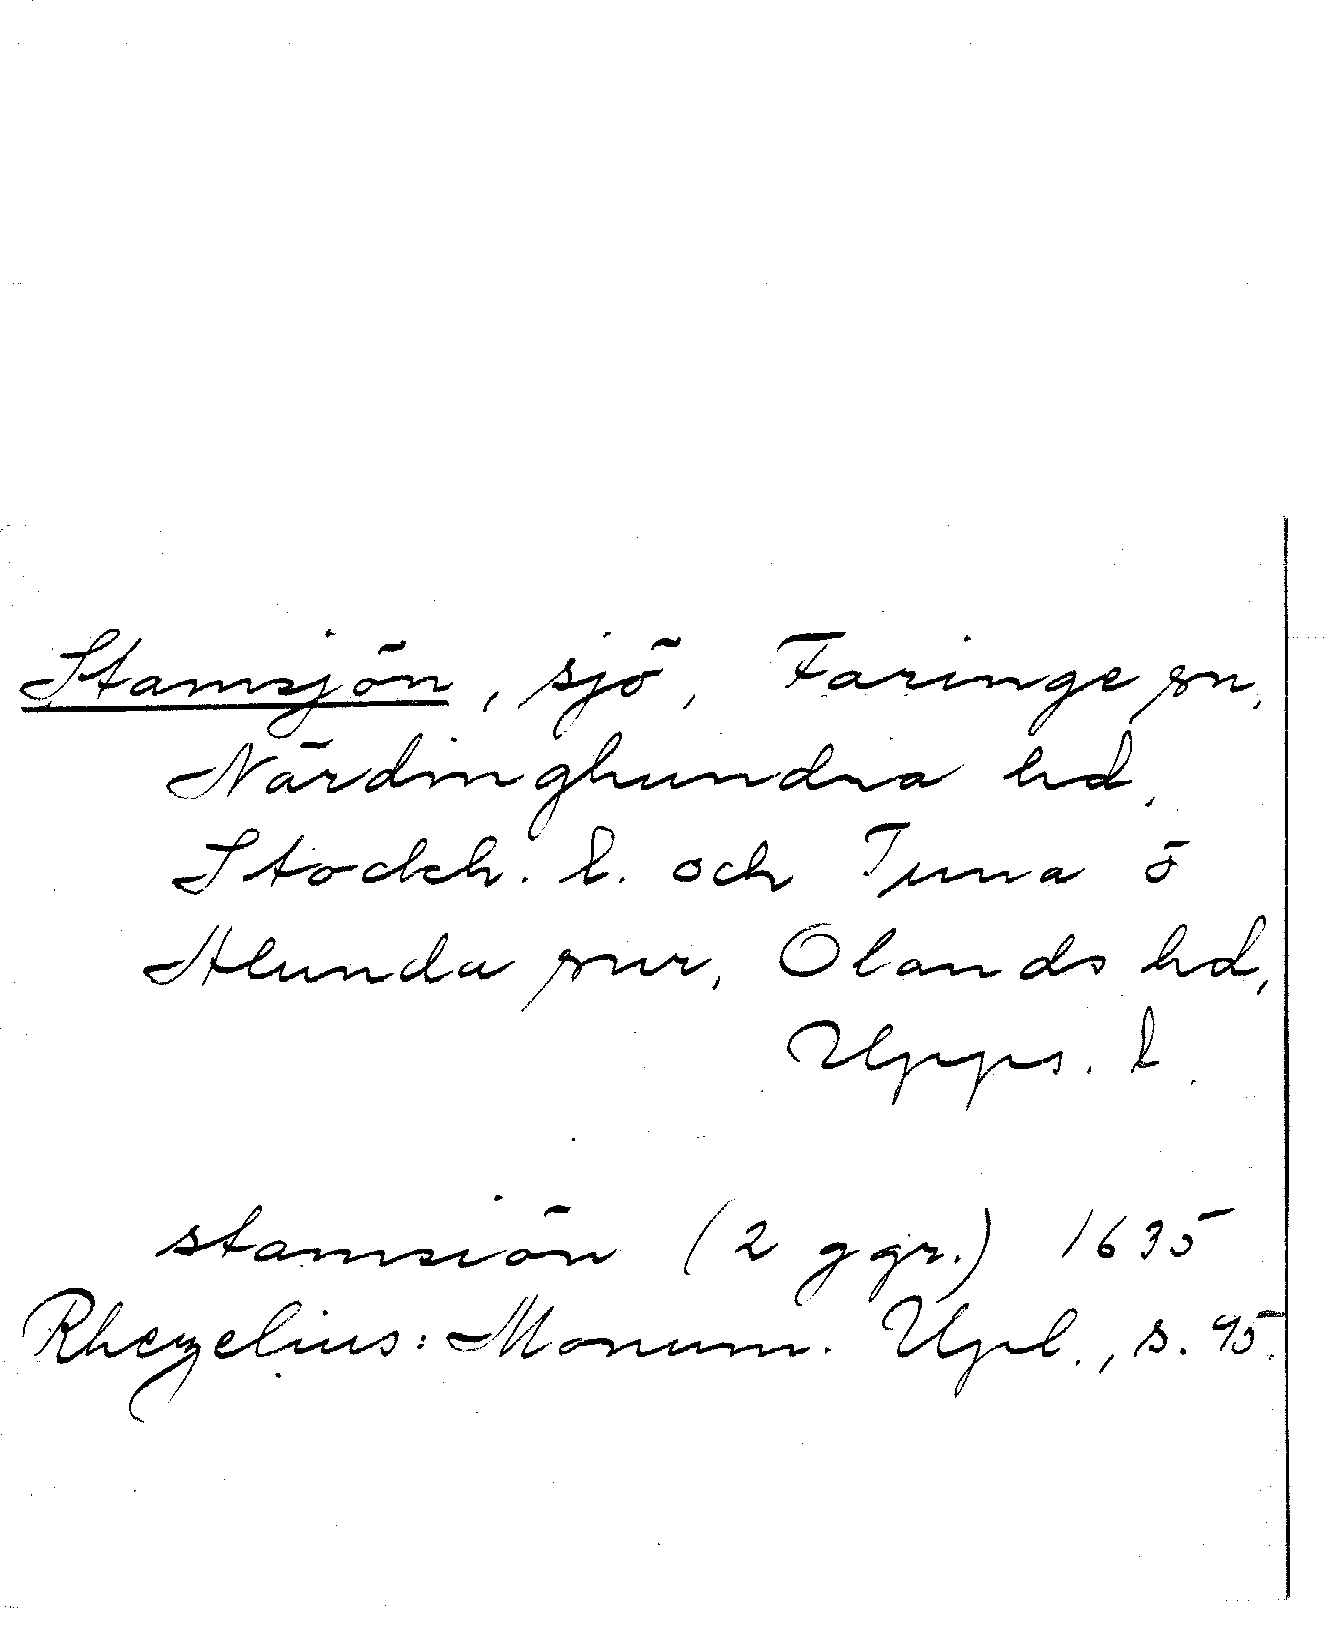 Stamsjön, sjö, Faringe sn,
Närdinghundra hd,
Stockh. l. och Tuna o
Alunda snr, Olands hd,
Upps. l.
stamsiön (2 ggr.) 1635
Rhezelius: Monum. Upl., s. 95.